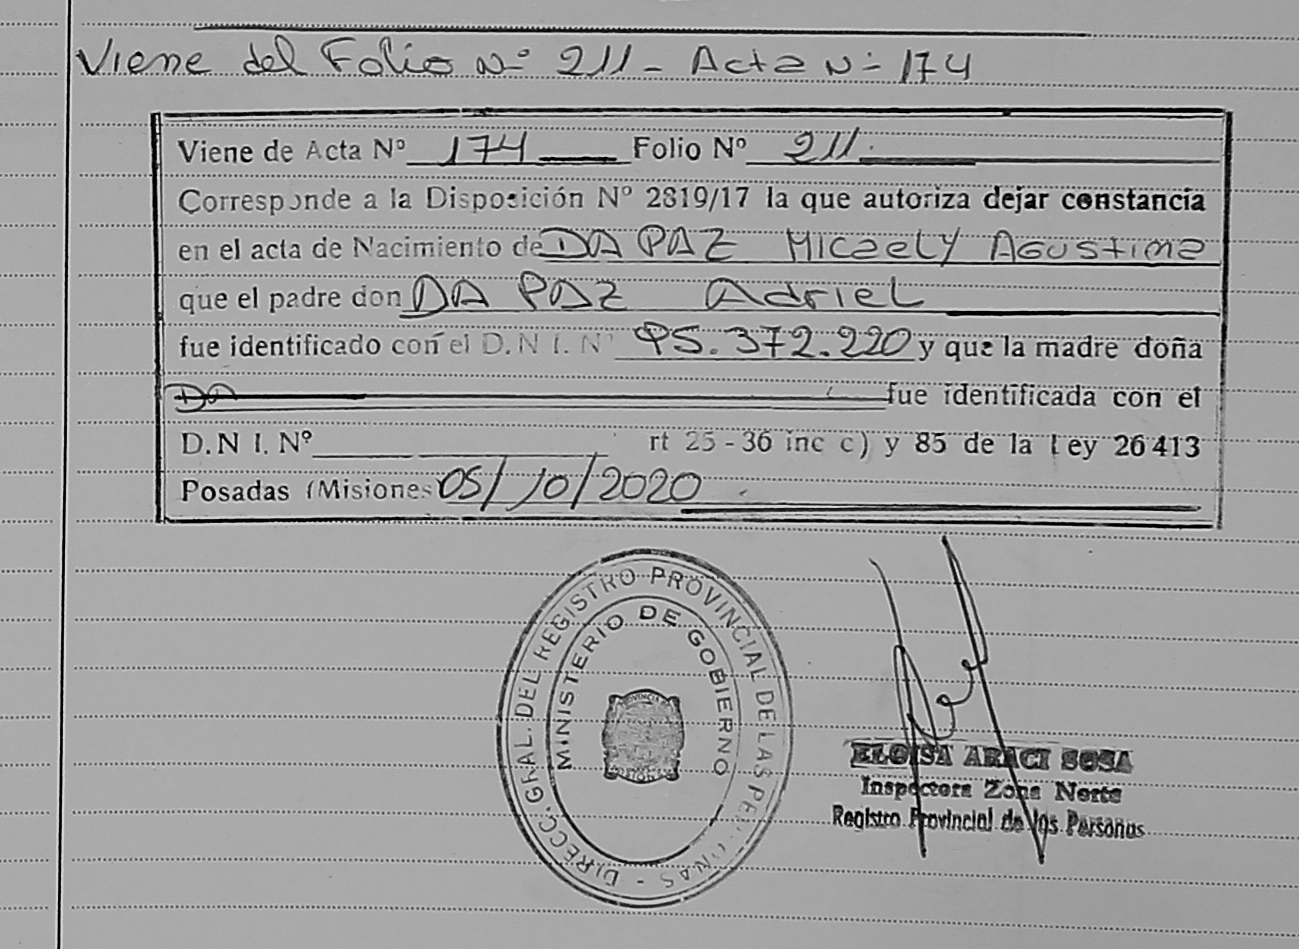 Viene del Folio Nº 211 - Acta Nº 174
Viene de Acta Nº 174 Folio Nº 211.
Corresponde a la Disposición Nº 2819/17 la que autoriza dejar constancia
en el acta de Nacimiento de DA PAZ Micaely Agustina
que el padre don DA PAZ Adriel
fue identificado con el D.N I. Nº 95.372.220 y que la madre doña
DA fue identificada con el
D.N I. Nº rt 25 - 36 inc c) y 85 de la Ley 26413
Posadas (Misiones 05/10/2020
DIRECC. GRAL. DEL REGISTRO PROVINCIAL DE LAS PERSONAS -
MINISTERIO DE GOBIERNO
ELOISA ARACI SOSA
Inspectora Zona Norte
Registro Provincial de las Personas